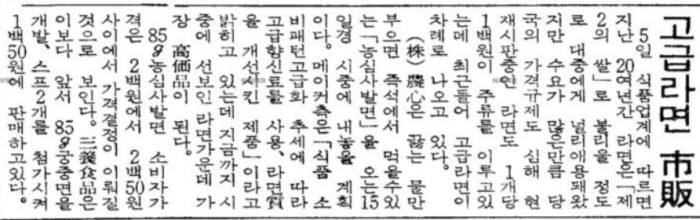 고급라면 市販
5일 식품업계에 따르면
지난 20여년간 라면은「제
2의 쌀」로 불리울 정도
로 대중에게 널리애용돼왔
지만 수요가 많은만큼 당
국의 가격규제도 심해 현
재시판중인 라면도 1개당
1백원이 주류를 이루고있
는데 최근들어 고급라면이
차례로 나오고 있다.
(株)農心은 끓는 물만
부으면 즉석에서 먹을수있
는「농심사발면」을 오는15
일경 시중에 내놓을 계획
이다. 메이커측은「식품 소
비패턴고급화 추세에 따라
고급향신료를 사용、라면質
을 개선시킨 제품」이라고
밝히고 있는데 지금까지 시
중에 선보인 라면가운데 가
장 高価品이 된다.
85g농심사발면 소비자가
격은 2백원에서 2백50원
사이에서 가격결정이 이뤄질
것으로 보인다. 三養食品은
이보다 앞서 85g궁중면을
개발、스프2개를 첨가시켜
1백50원에 판매하고있다.